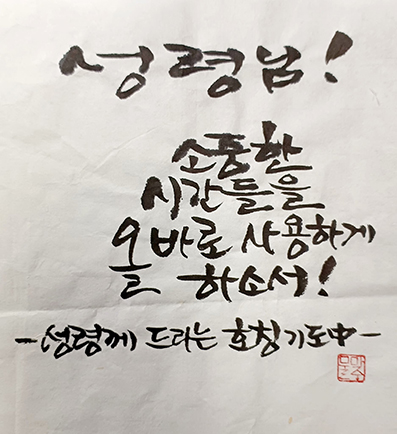 성령님!
소중한
시간들을
올바로 사용하게
하소서!
-성령께 드리는 호칭기도中-